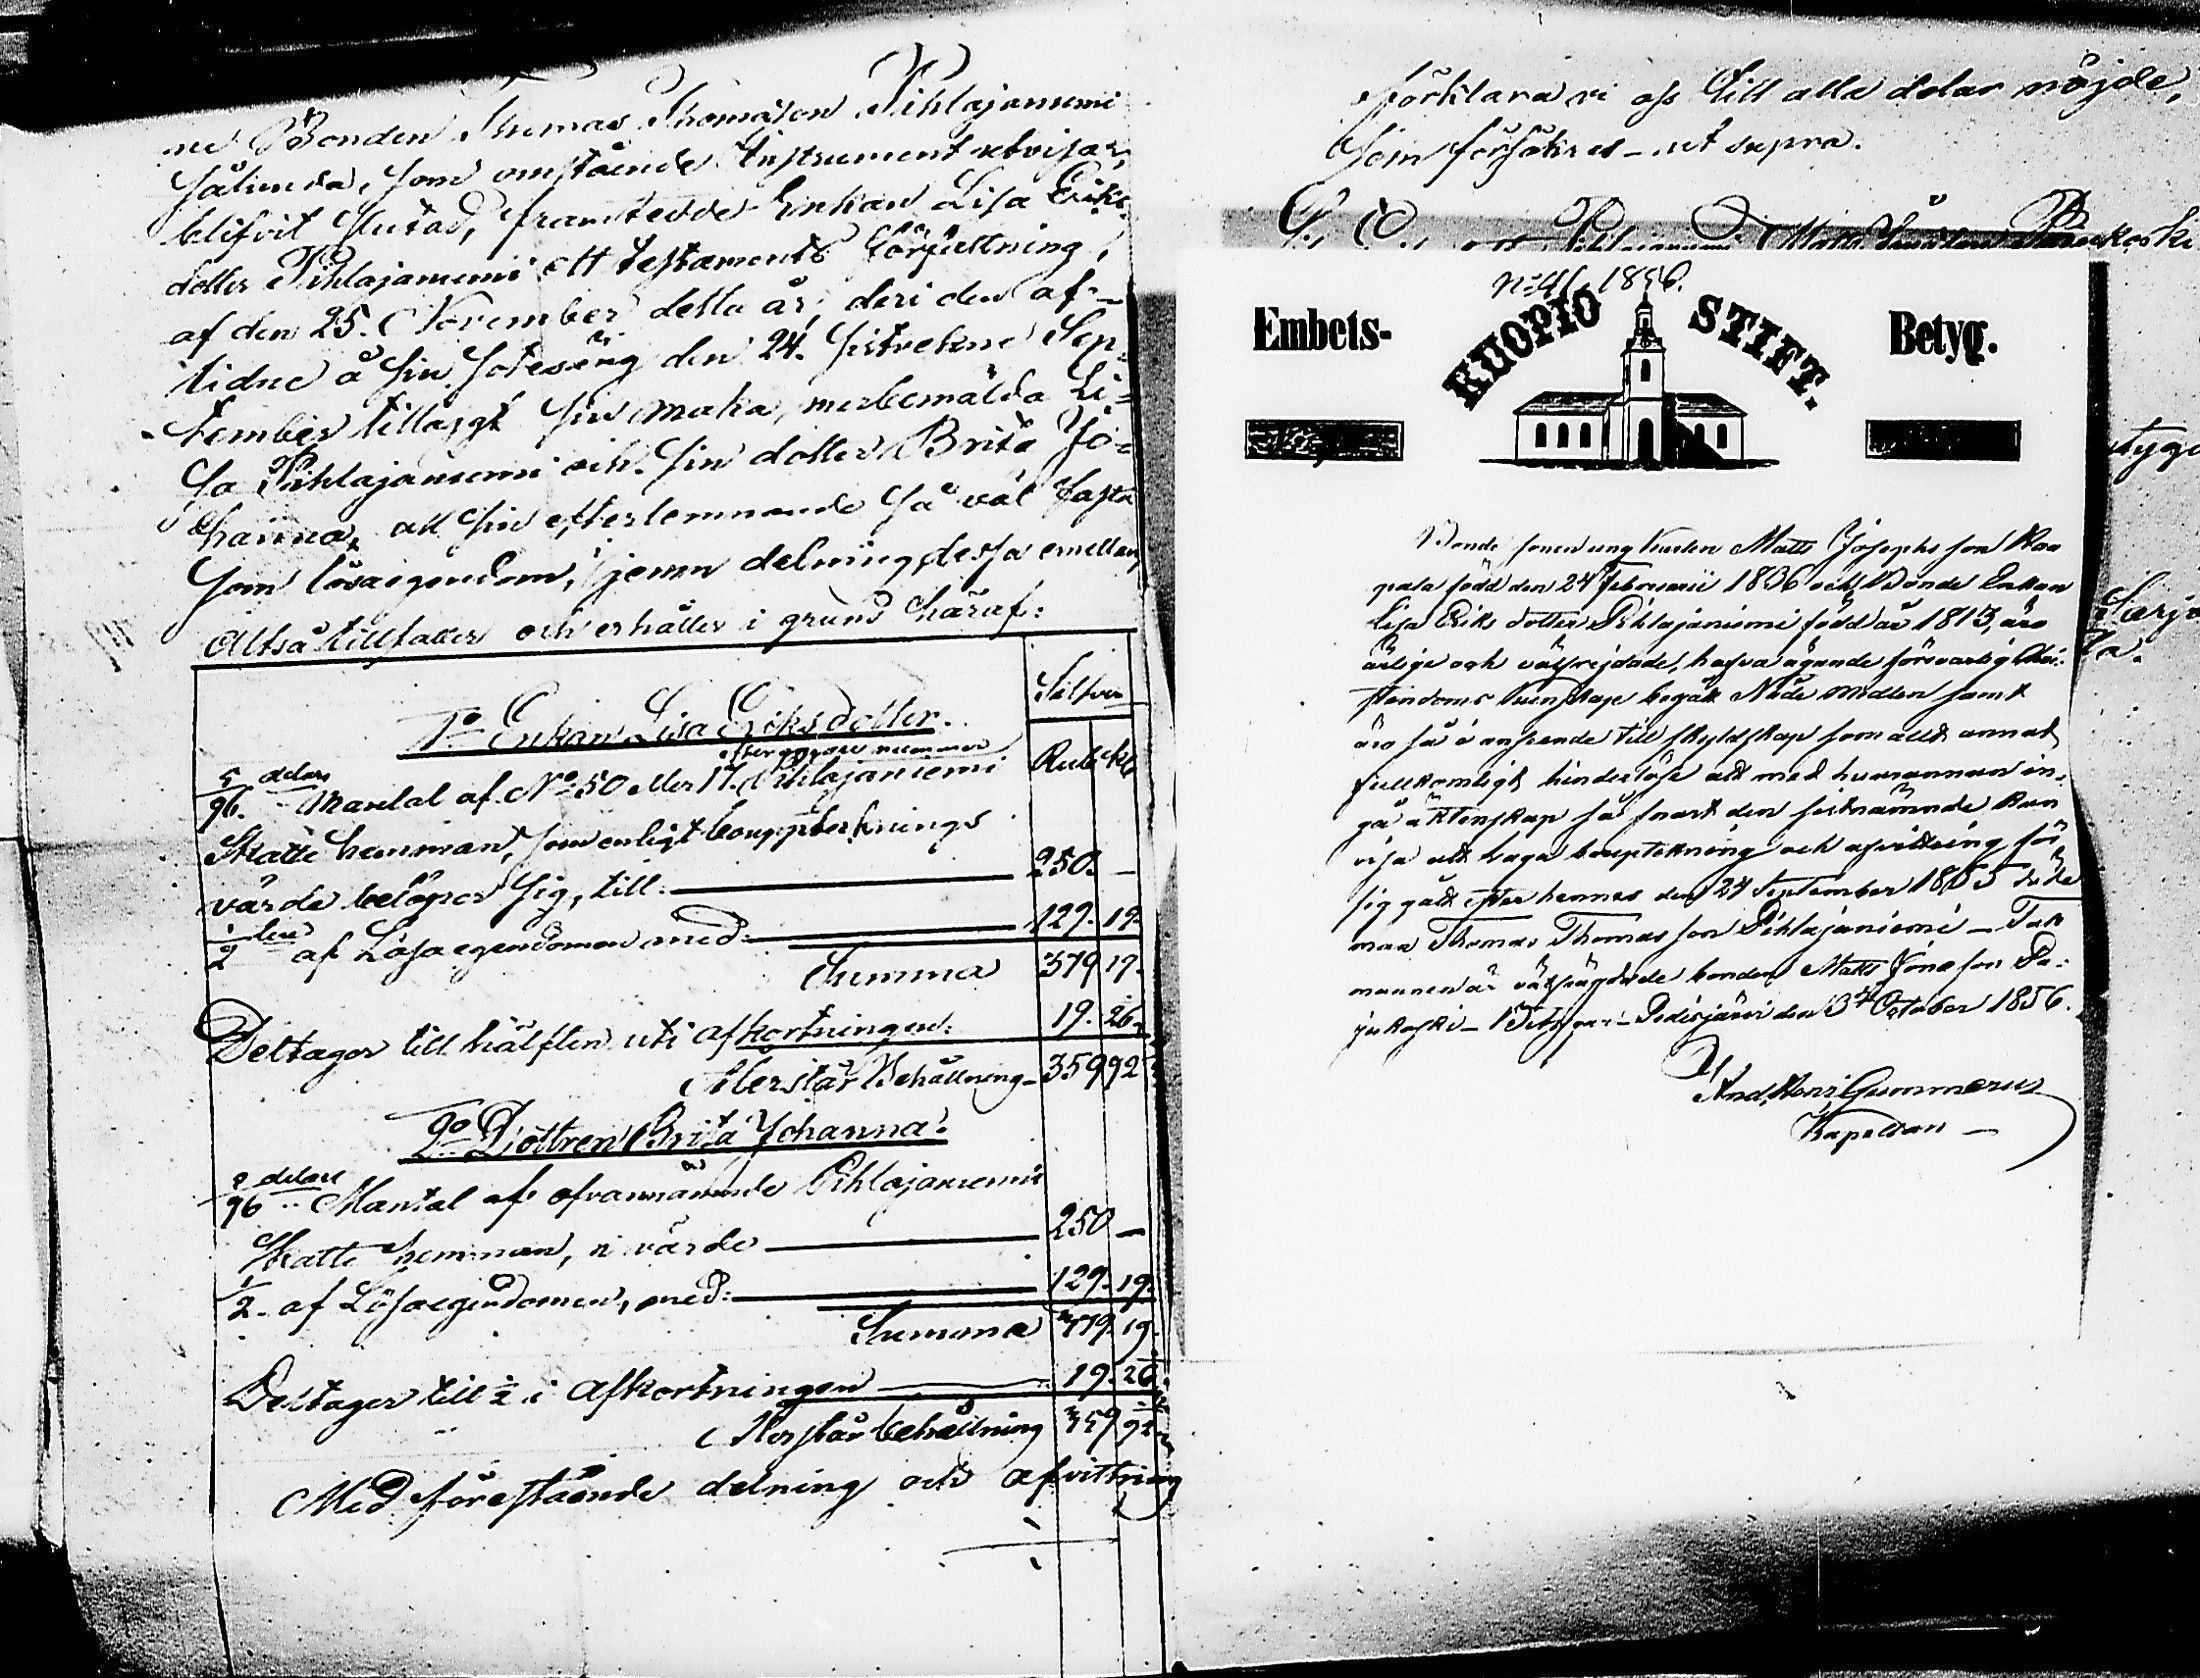 ne Bonden Thomas Thomasson Pihlajaniemi
sålunda, som omstående Instrument utvisar,
blifvit slutad, framtedde Enkan Lisa Eriks
dotter Pihlajaniemi ett testaments författning,
af den 25. November detta år, deri den af-
lidne å sin sotesäng den 24. sistvekne Sep-
tember tillagt sin maka, merbemälda Li-
sa Pihlajaniemi och sin dotter Brita Jo-
hanna, all sin efterlemnande så väl fasta
som lösaegendom, i jemn delning dessa emellan,
Altså tillfaller och erhåller i grund häraf:
Silfver
1o Enkan Lisa Eriksdotter.
Rub. kop
5/96 delars Mantal af No 50 eller 17. Pihlajaniemi
Skatte hemman, som enligt bouppteknings
värde belöper sig, till: 250. —
1/2 af Lösaegendomen med: 129. 19.
Summa 379 19.
Deltager till hälften uti afkortningen: 19. 26.
Återstår Behållning 359 92
2o Dottren Brita Johanna.
96 delars Mantal af ofvannämnde Pihlajaniemi
Skatte hemman, i värde 250 —
1/2 af Lösaegendomen, med: 129. 19.
Summa 379. 19.
Deltager till 1/2 i afkortningen 19. 26
Återstår behållning 359 92
Med förestående delning och afvittring
förklara vi oss till alla delar nöjde,
som försäkres — ut supra.
No 41. 1856.
Embets- KUOPIO STIFT. Betyg.
Bonde sonen ung karlen Matts Josephs son
född den 24 Februarii 1836 och Bonde Enkan
Lisa Eriks dotter Pihlajaniemi född år 1813, äro
ärlige och välfrejdade, hafva ägande försvarlig Chri-
stendoms kunskap begått Nåde medlen samt
äro så i anseende till skyldskap som allt annat
fullkomligt hinderlöse att med hvarannan in-
gå äktenskap så snart den sistnämnde kan
visa att laga bouptekning och afvittring för
sig gått efter hennes den 24 September 1855 döde
man Thomas Thomas son Pihlajaniemi —
mannen är bonden Matts Jonas son
Betygar — Pedersjäri den 3 October 1856.
And. Henr. Gummerus
Kapellan —